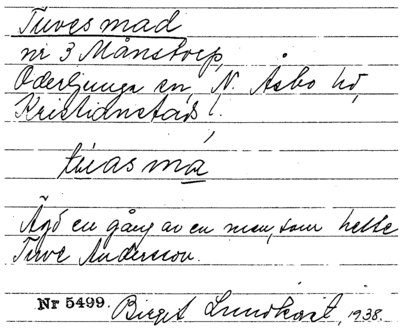 Tuves mad
nr 3 Månstorp,
Oderljunga sn, N. Åsbo hd,
Kristianstads l.
túas mà
Ägd en gång av en man, som hette
Tuve Andersson.
Nr 5499. Birget Lundkvist, 1938.